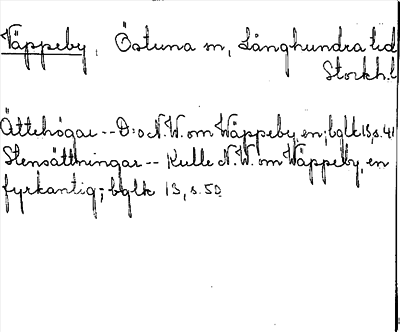 Väppeby, Östuna sn, Långhundra hd
Stockh. l
Ättehögar -- D:o N.W. om Wäppeby, en; bglk 13, s. 41
Stensättningar -- Kulle N.W. om Wäppeby, en
fyrkantig; bglk 13, s. 50